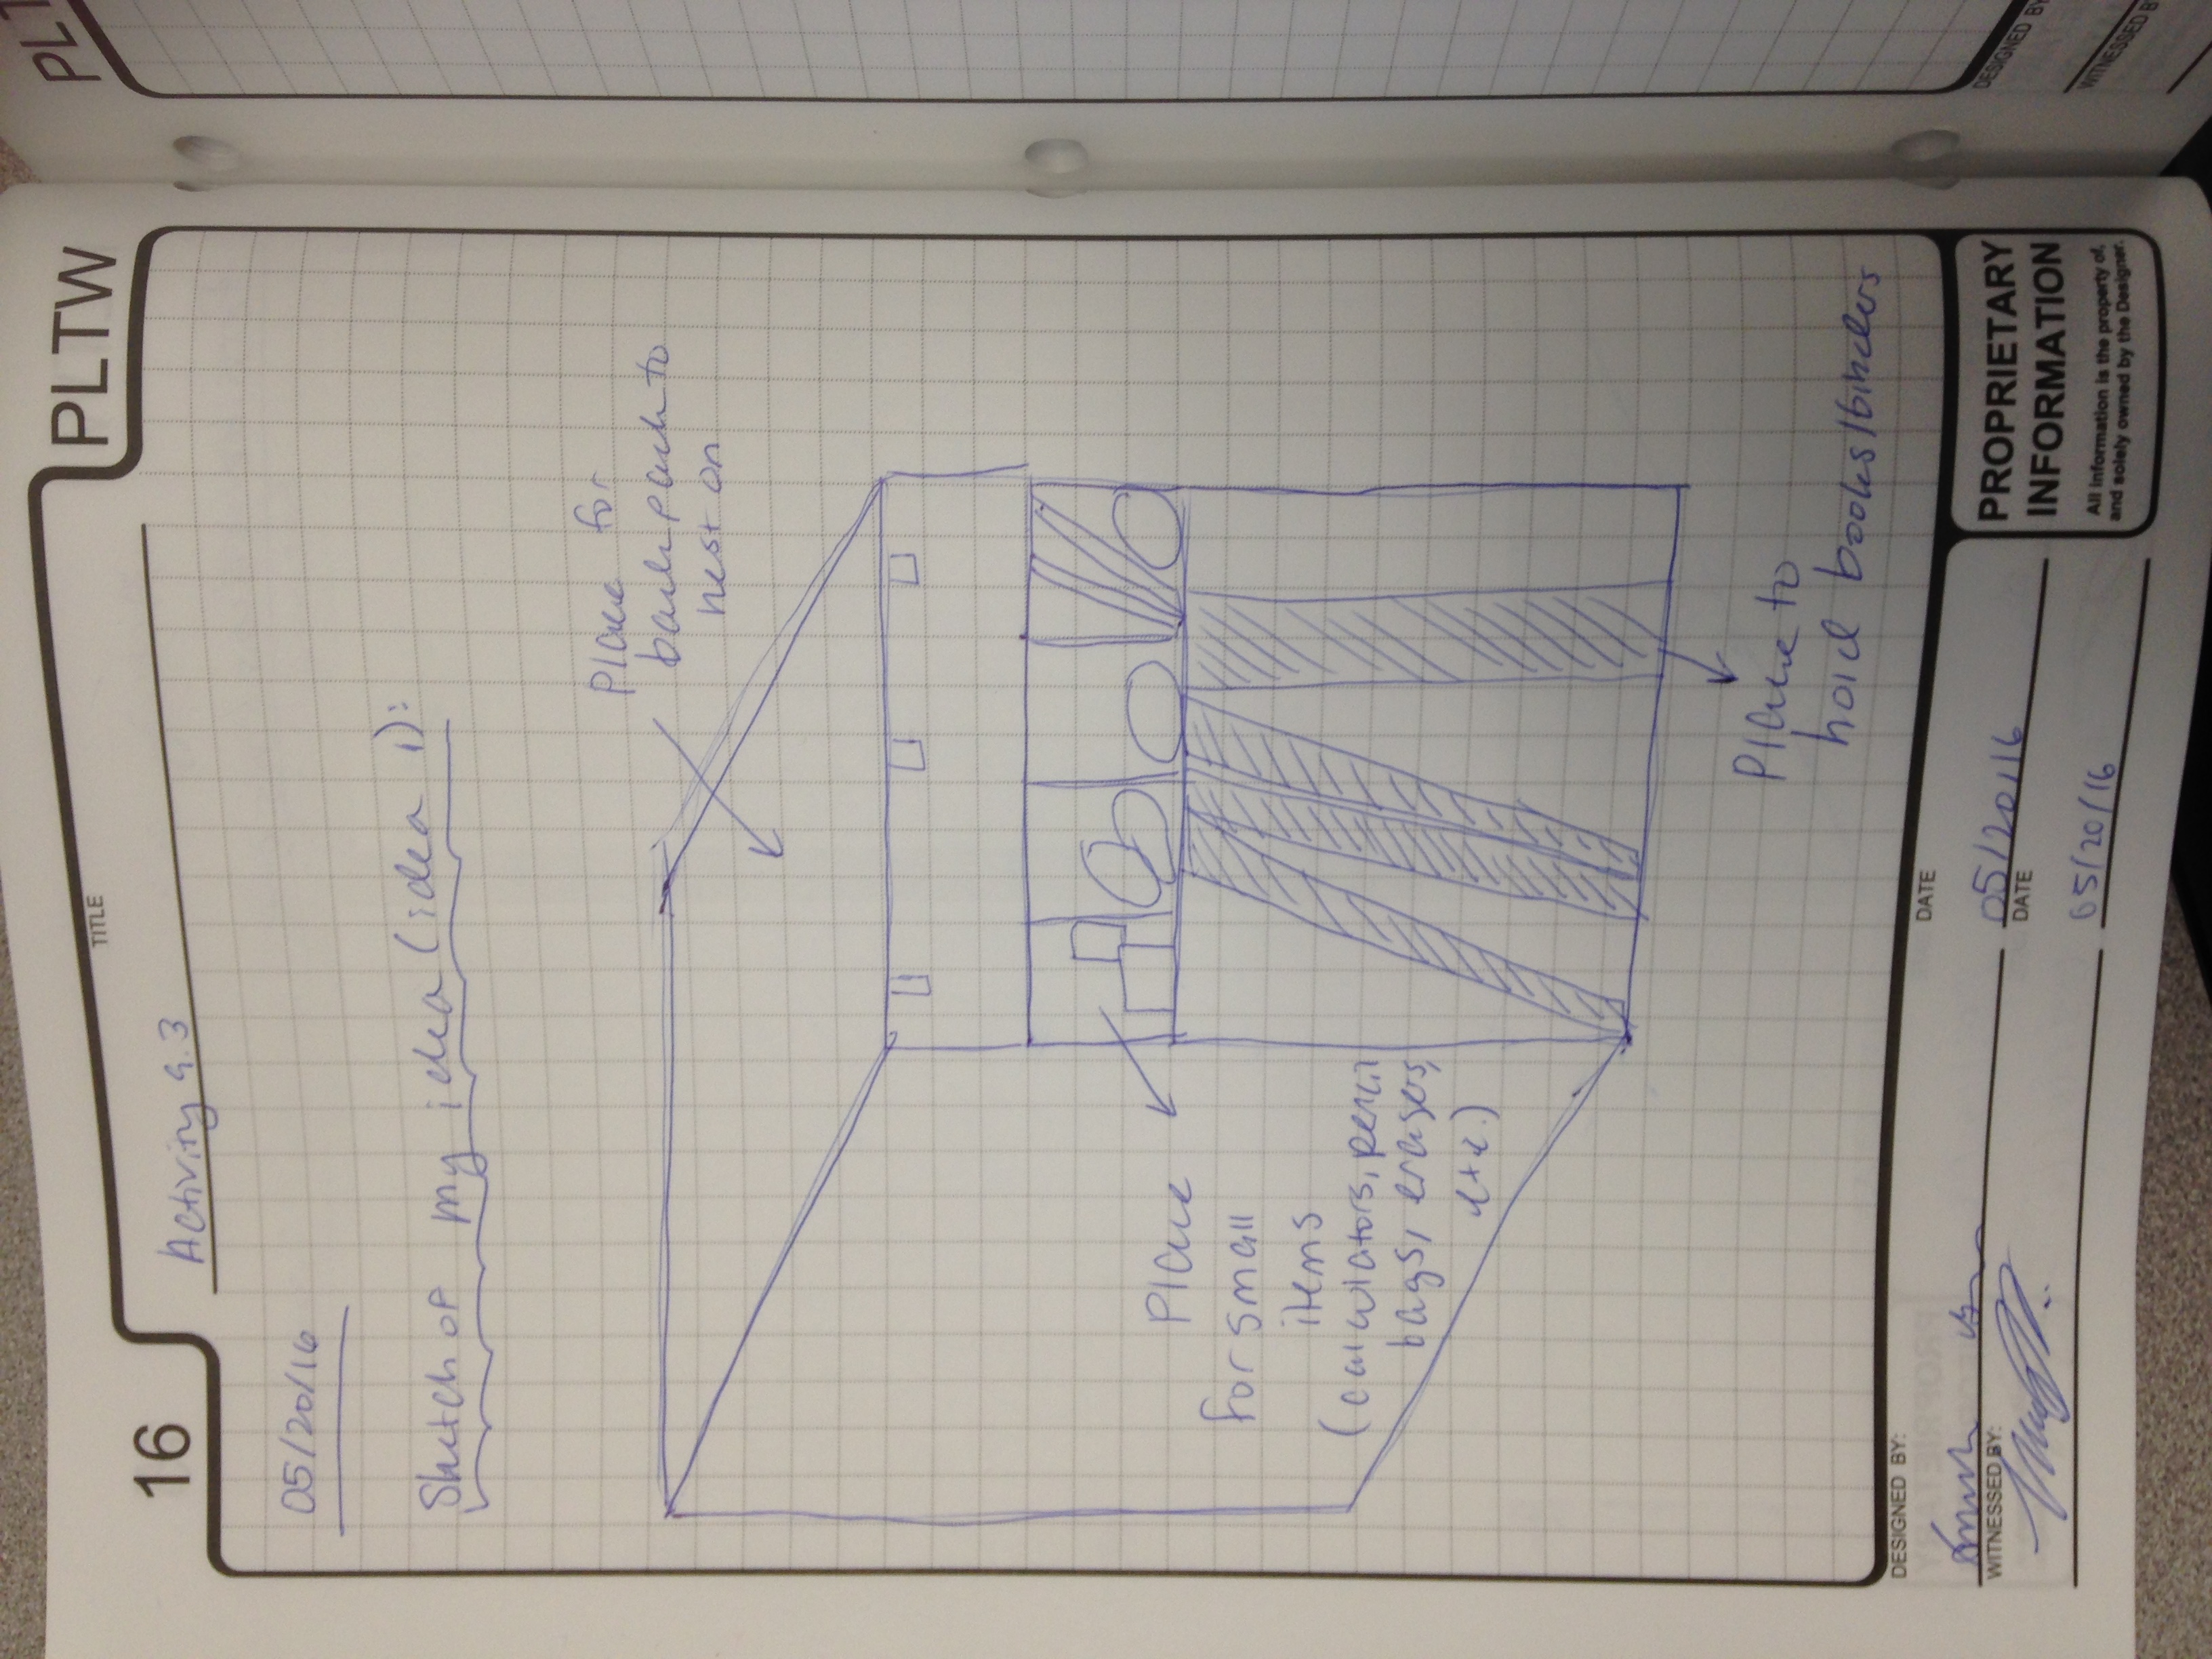 16
TITLE
PLTW
Activity 9.3
05/20/16
Sketch of my idea (idea 1):
Place for
backpack to
rest on
Place
for small
items
(calculators, pencil
bags, erasers,
etc.)
Place to
hold books/binders
DESIGNED BY:
DATE
05/20/16
WITNESSED BY:
DATE
05/20/16
PROPRIETARY
INFORMATION
All information is the property of,
and solely owned by the Designer.
PLT
DESIGNED BY
WITNESSED B